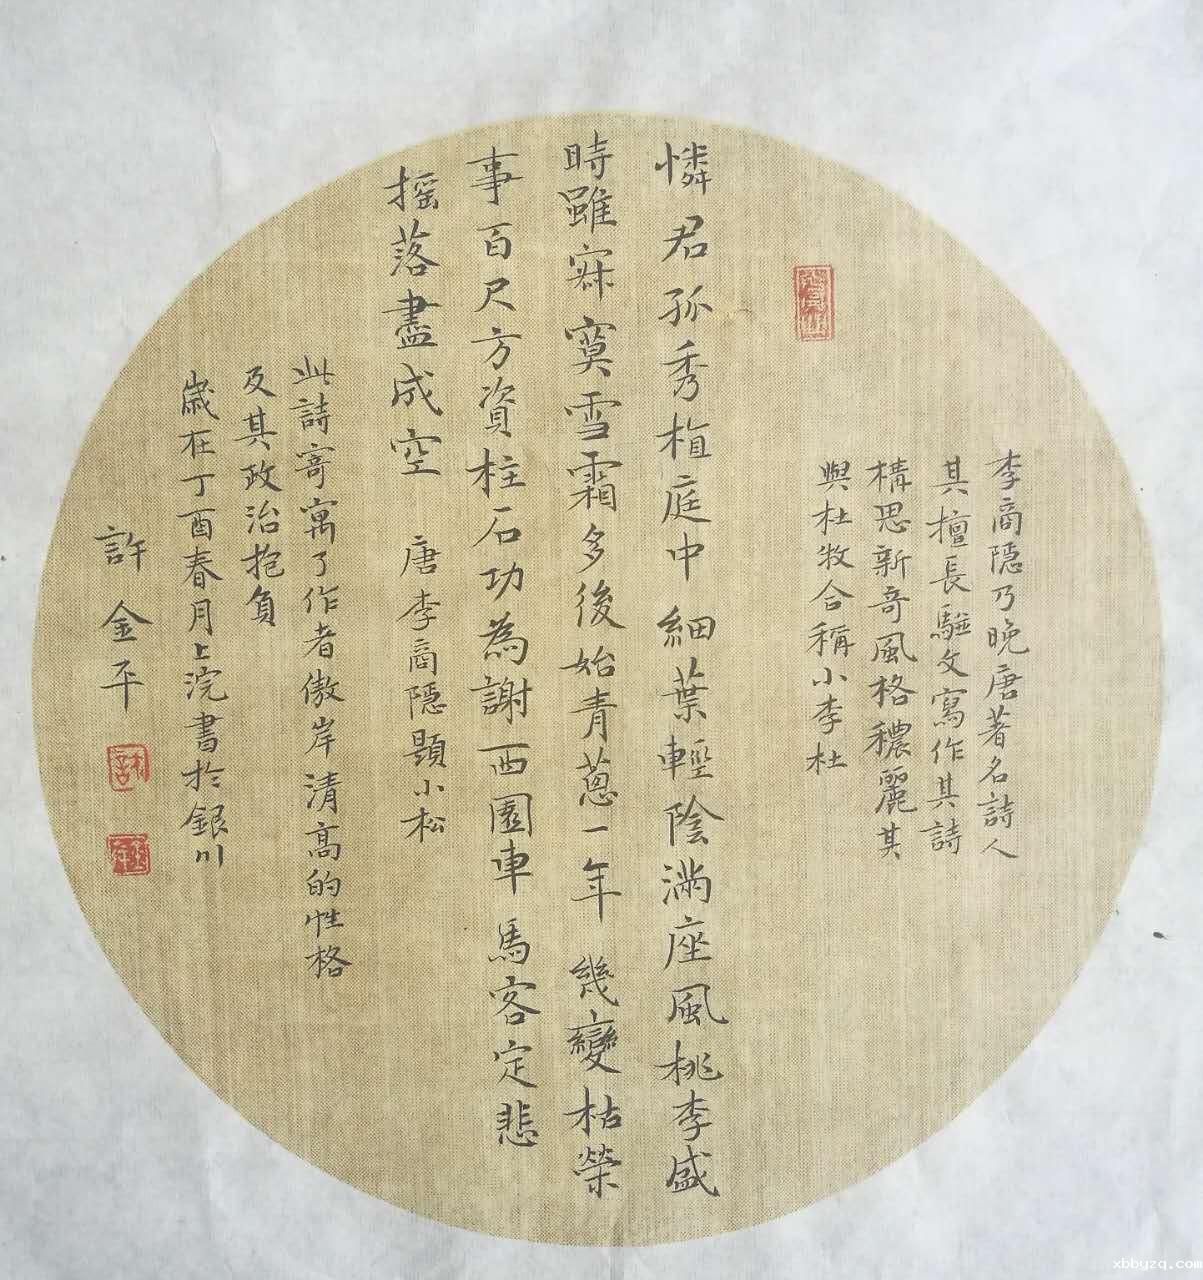 李商隱乃晚唐著名詩人
其檀長駢文寫作其詩
構思新奇風格穠麗其
與杜牧合稱小李杜
憐君孤秀植庭中細葉輕陰滿座風桃李盛
時雖寂寞雪霜多後始青蔥一年幾變枯榮
事百尺方資柱石功為謝西園車馬客定悲
搖落盡成空 唐李商隱題小松
此詩寄寓了作者傲岸清高的性格
及其政治抱負
歲在丁酉春月上浣書於銀川
許金平
許
金平
xbbyzq.com